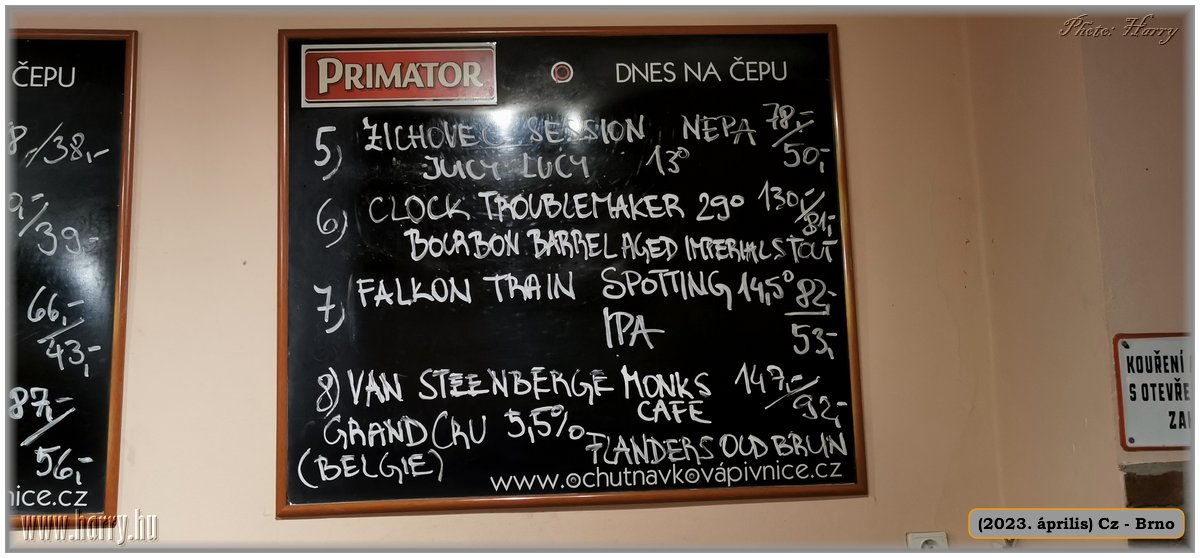 Photo: Harry
ČEPU
8,-/38,-
9,-/39,-
66,-
43,-
87,-
56,-
nice.cz
PRIMATOR
DNES NA ČEPU
5) ZICHOVEC SESSION NEPA 78,-/50,-
JUCY LUCY 13°
6) CLOCK TROUBLEMAKER 29° 130,-/81,-
BOURBON BARREL AGED IMPERIAL STOUT
7) FALKON TRAIN SPOTTING 14,5° 82,-
IPA 53,-
8) VAN STEENBERGE MONKS 147,-/92,-
CAFE
GRAND CRU 5,5%
FLANDERS OUD BRUIN
(BELGIE)
www.ochutnavkovápivnice.cz
KOUŘENÍ
S OTEVŘE
ZA
www.harry.hu
(2023. április) Cz - Brno